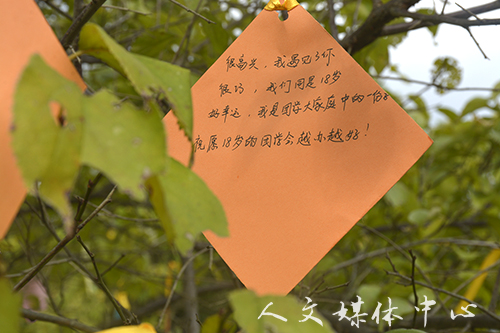 很高兴，我遇见了你
很巧，我们同是18岁
好幸运，我是团学大家庭中的一份子
祝愿18岁的团学会越办越好！
人文媒体中心